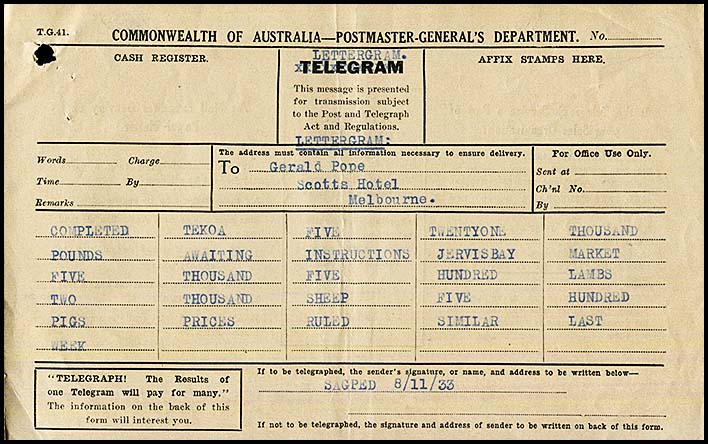 T.G.41.
COMMONWEALTH OF AUSTRALIA—POSTMASTER-GENERAL'S DEPARTMENT. No.
CASH REGISTER.
LETTERGRAM.
TELEGRAM
This message is presented
for transmission subject
to the Post and Telegraph
Act and Regulations.
LETTERGRAM:
AFFIX STAMPS HERE.
Words Charge
Time By
Remarks
The address must contain all information necessary to ensure delivery.
To Gerald Pope
Scotts Hotel
Melbourne.
For Office Use Only.
Sent at
Ch'nl No.
By
COMPLETED TEKOA FIVE TWENTYONE THOUSAND
POUNDS AWAITING INSTRUCTIONS JERVISBAY MARKET
FIVE THOUSAND FIVE HUNDRED LAMBS
TWO THOUSAND SHEEP FIVE HUNDRED
PIGS PRICES RULED SIMILAR LAST
WEEK
"TELEGRAPH! The Results of
one Telegram will pay for many."
The information on the back of this
form will interest you.
If to be telegraphed, the sender's signature, or name, and address to be written below—
SAGPED 8/11/33
If not to be telegraphed, the signature and address of sender to be written on back of this form.